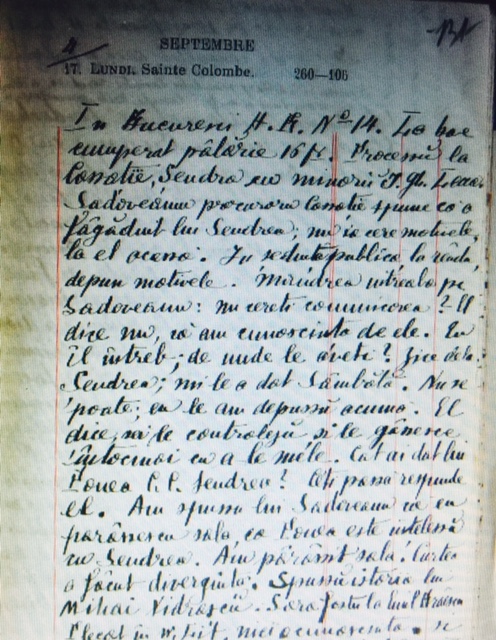 4
SEPTEMBRE
17. LUNDI. Sainte Colombe. 260—105
In Bucuresci H. R. No 14. La
cumperat pălărie 16 f. Procesul la
Casație, Sendrea cu minorii I. Gh. Lecca
Sadoveanu procuroru Casatie spune că a
făgăduit lui Sendrea; mi ia cere motivele,
la el acasa. In sedinta publica, la rêndu,
depun motivele. Mandrea intréba pe
Sadoveanu: nu cereti comunicarea? El
dice nu, că am cunoscinta de ele. Eu
îl întreb; de unde le aveti? Dice dela
Sendrea; mi le a dat Sâmbătă. Nu se
poate; eu le am depussu acuma. El
dice, să le controlezu si le găsesce
întocmai cu a le mele. Cat ai dat lui
Pouca P. P. Sendrea? Câti pasa respunde
el. Am spussu lui Sadoveanu că eu
părăsescu sala, ca Pouca este intelessu
cu Sendrea. Am părăsit sala. Curtea
a făcut diverginta. Spussu istoria lui
Mihai Vidrascu. Sara fostu la
Plecat in cunoscinta. se